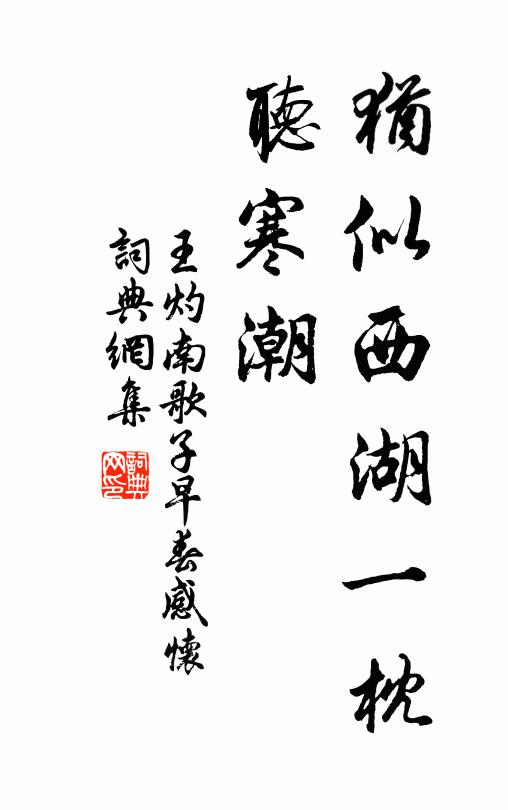 猶似西湖一枕
聽寒潮
王灼南歌子早春感懷
詞典網集
詞典網印